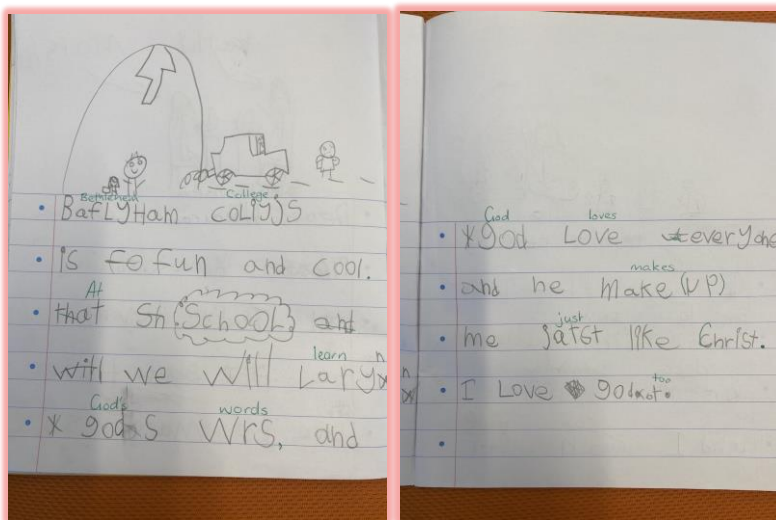 Bethlehem College
BafLyHam coLiyjs
is fo fun and cool.
At
that Sh School and
learn n
will we will Laryx
God's words
x god s wrs, and
God loves
x god Love everyone
makes
and he make (up)
just
me jatst like Christ.
too
I Love god